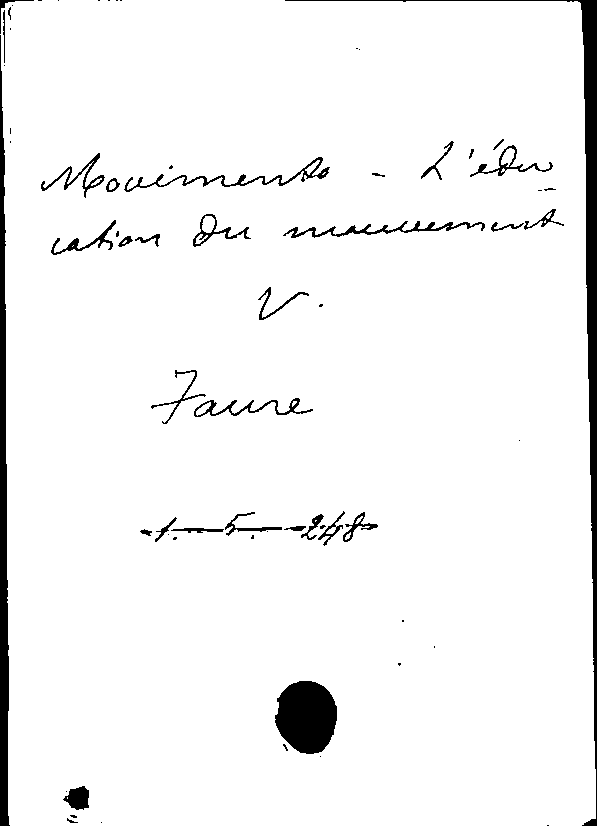 Movimento - L'édu-
cation du mouvement
V.
Faure
1. - 5. - 248